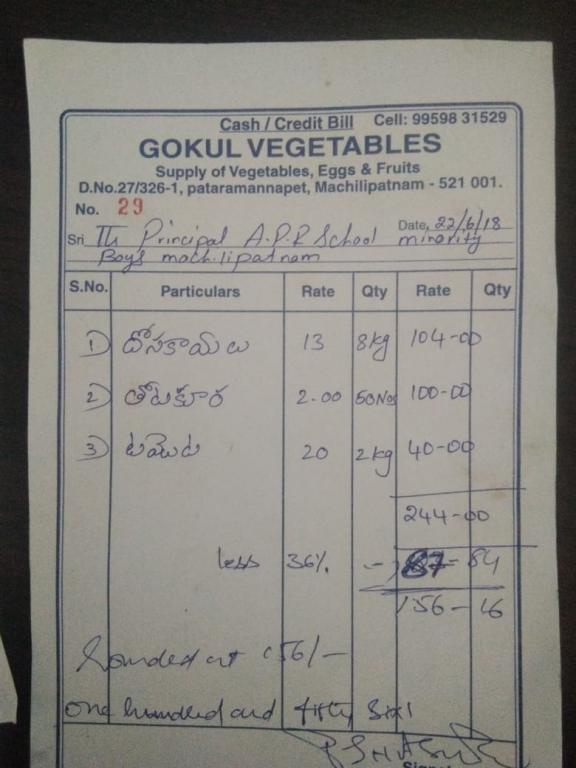 Cash / Credit Bill Cell: 99598 31529
GOKUL VEGETABLES
Supply of Vegetables, Eggs & Fruits
D.No.27/326-1, pataramannapet, Machilipatnam - 521 001.
No. 29
Date, 22/6/18
Sri The Principal A.P.R School minority
Boys machilipatnam
S.No. Particulars Rate Qty Rate Qty
1) దోసకాయలు 13 8kg 104-00
2) తోటకూర 2.00 50Nos 100-00
3) టమెట 20 2kg 40-00
244-00
less 36% 87-84
156-16
Rounded at 156/-
one hundred and fifty six